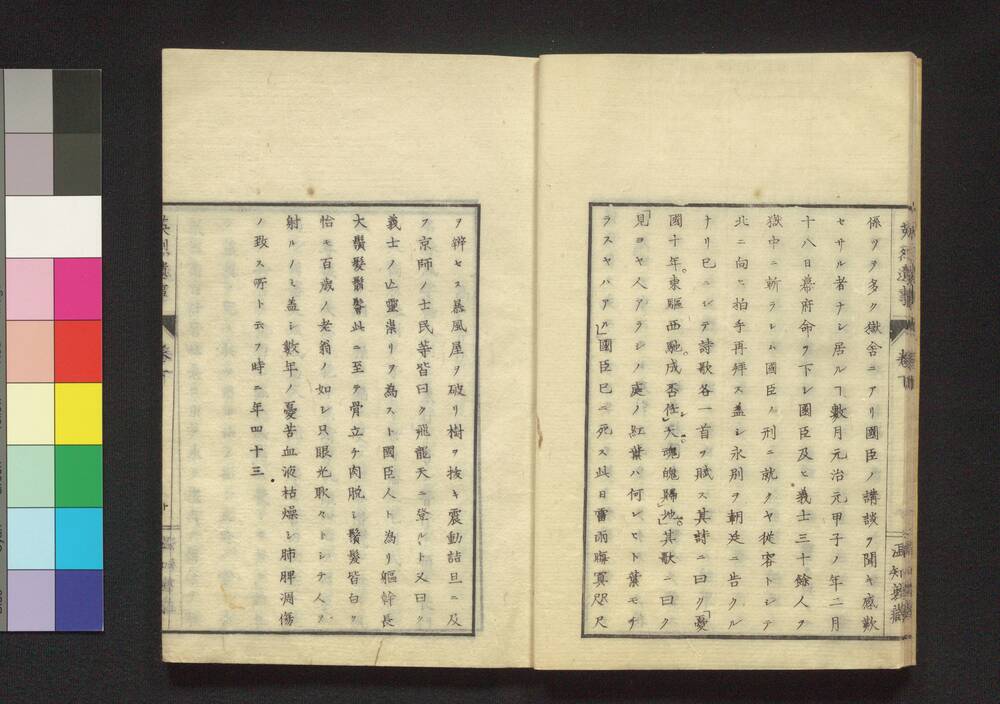 係ヲ多ク獄舎ニアリ國臣ノ講談ヲ聞キ感歎
セサル者ナシ居ルヿ數月元治元甲子ノ年二月
十八日幕府命ヲ下シ國臣及ヒ義士三十餘人ヲ
獄中ニ斬ラシム國臣ノ刑ニ就クヤ從容トシテ
北ニ向ヒ拍手再拜ス盖シ永別ヲ朝廷ニ告クル
ナリ已ニシテ詩歌各一首ヲ賦ス其詩ニ曰ク「憂
國十年。東驅西馳。成否在天。魂魄歸地。」其歌ニ曰ク
「見ヨヤ人アラシノ庭ノ紅葉ハ何レヒト葉モチ
ラスヤハアル」國臣已ニ死ス此日雷雨晦冥咫尺
ヲ辨セス暴風屋ヲ破リ樹ヲ拔キ震動詰旦ニ及
フ京師ノ士民等皆曰ク飛龍天ニ登ルト又曰ク
義士ノ亡靈祟リヲ為スト國臣人ト為リ軀幹長
大鬚髮此ニ至テ骨立チ肉脫シ鬚髮皆白ク
恰モ百歳ノ老翁ノ如シ只眼光耿々トシテ人ヲ
射ルノミ盖シ數年ノ憂苦血液枯燥シ肺脾凋傷
ノ致ス所ト云フ時ニ年四十三
卷下